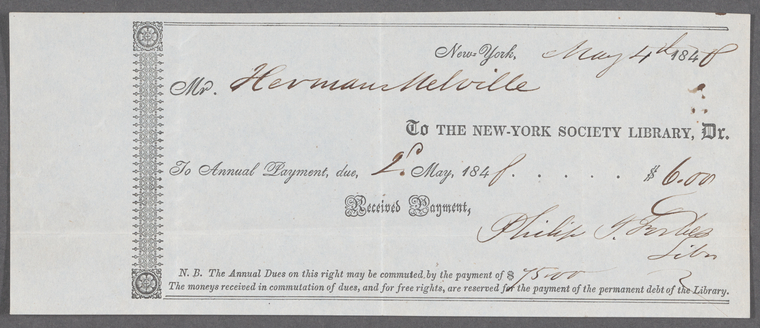 New-York, May 4th 1848
Mr. Herman Melville
To THE NEW-YORK SOCIETY LIBRARY, Dr.
To Annual Payment, due, 1st May, 1848. . . . . . $ 6.00
Received Payment,
Philip J. Forbes
Libn
N. B. The Annual Dues on this right may be commuted by the payment of $ 75.00
The moneys received in commutation of dues, and for free rights, are reserved for the payment of the permanent debt of the Library.